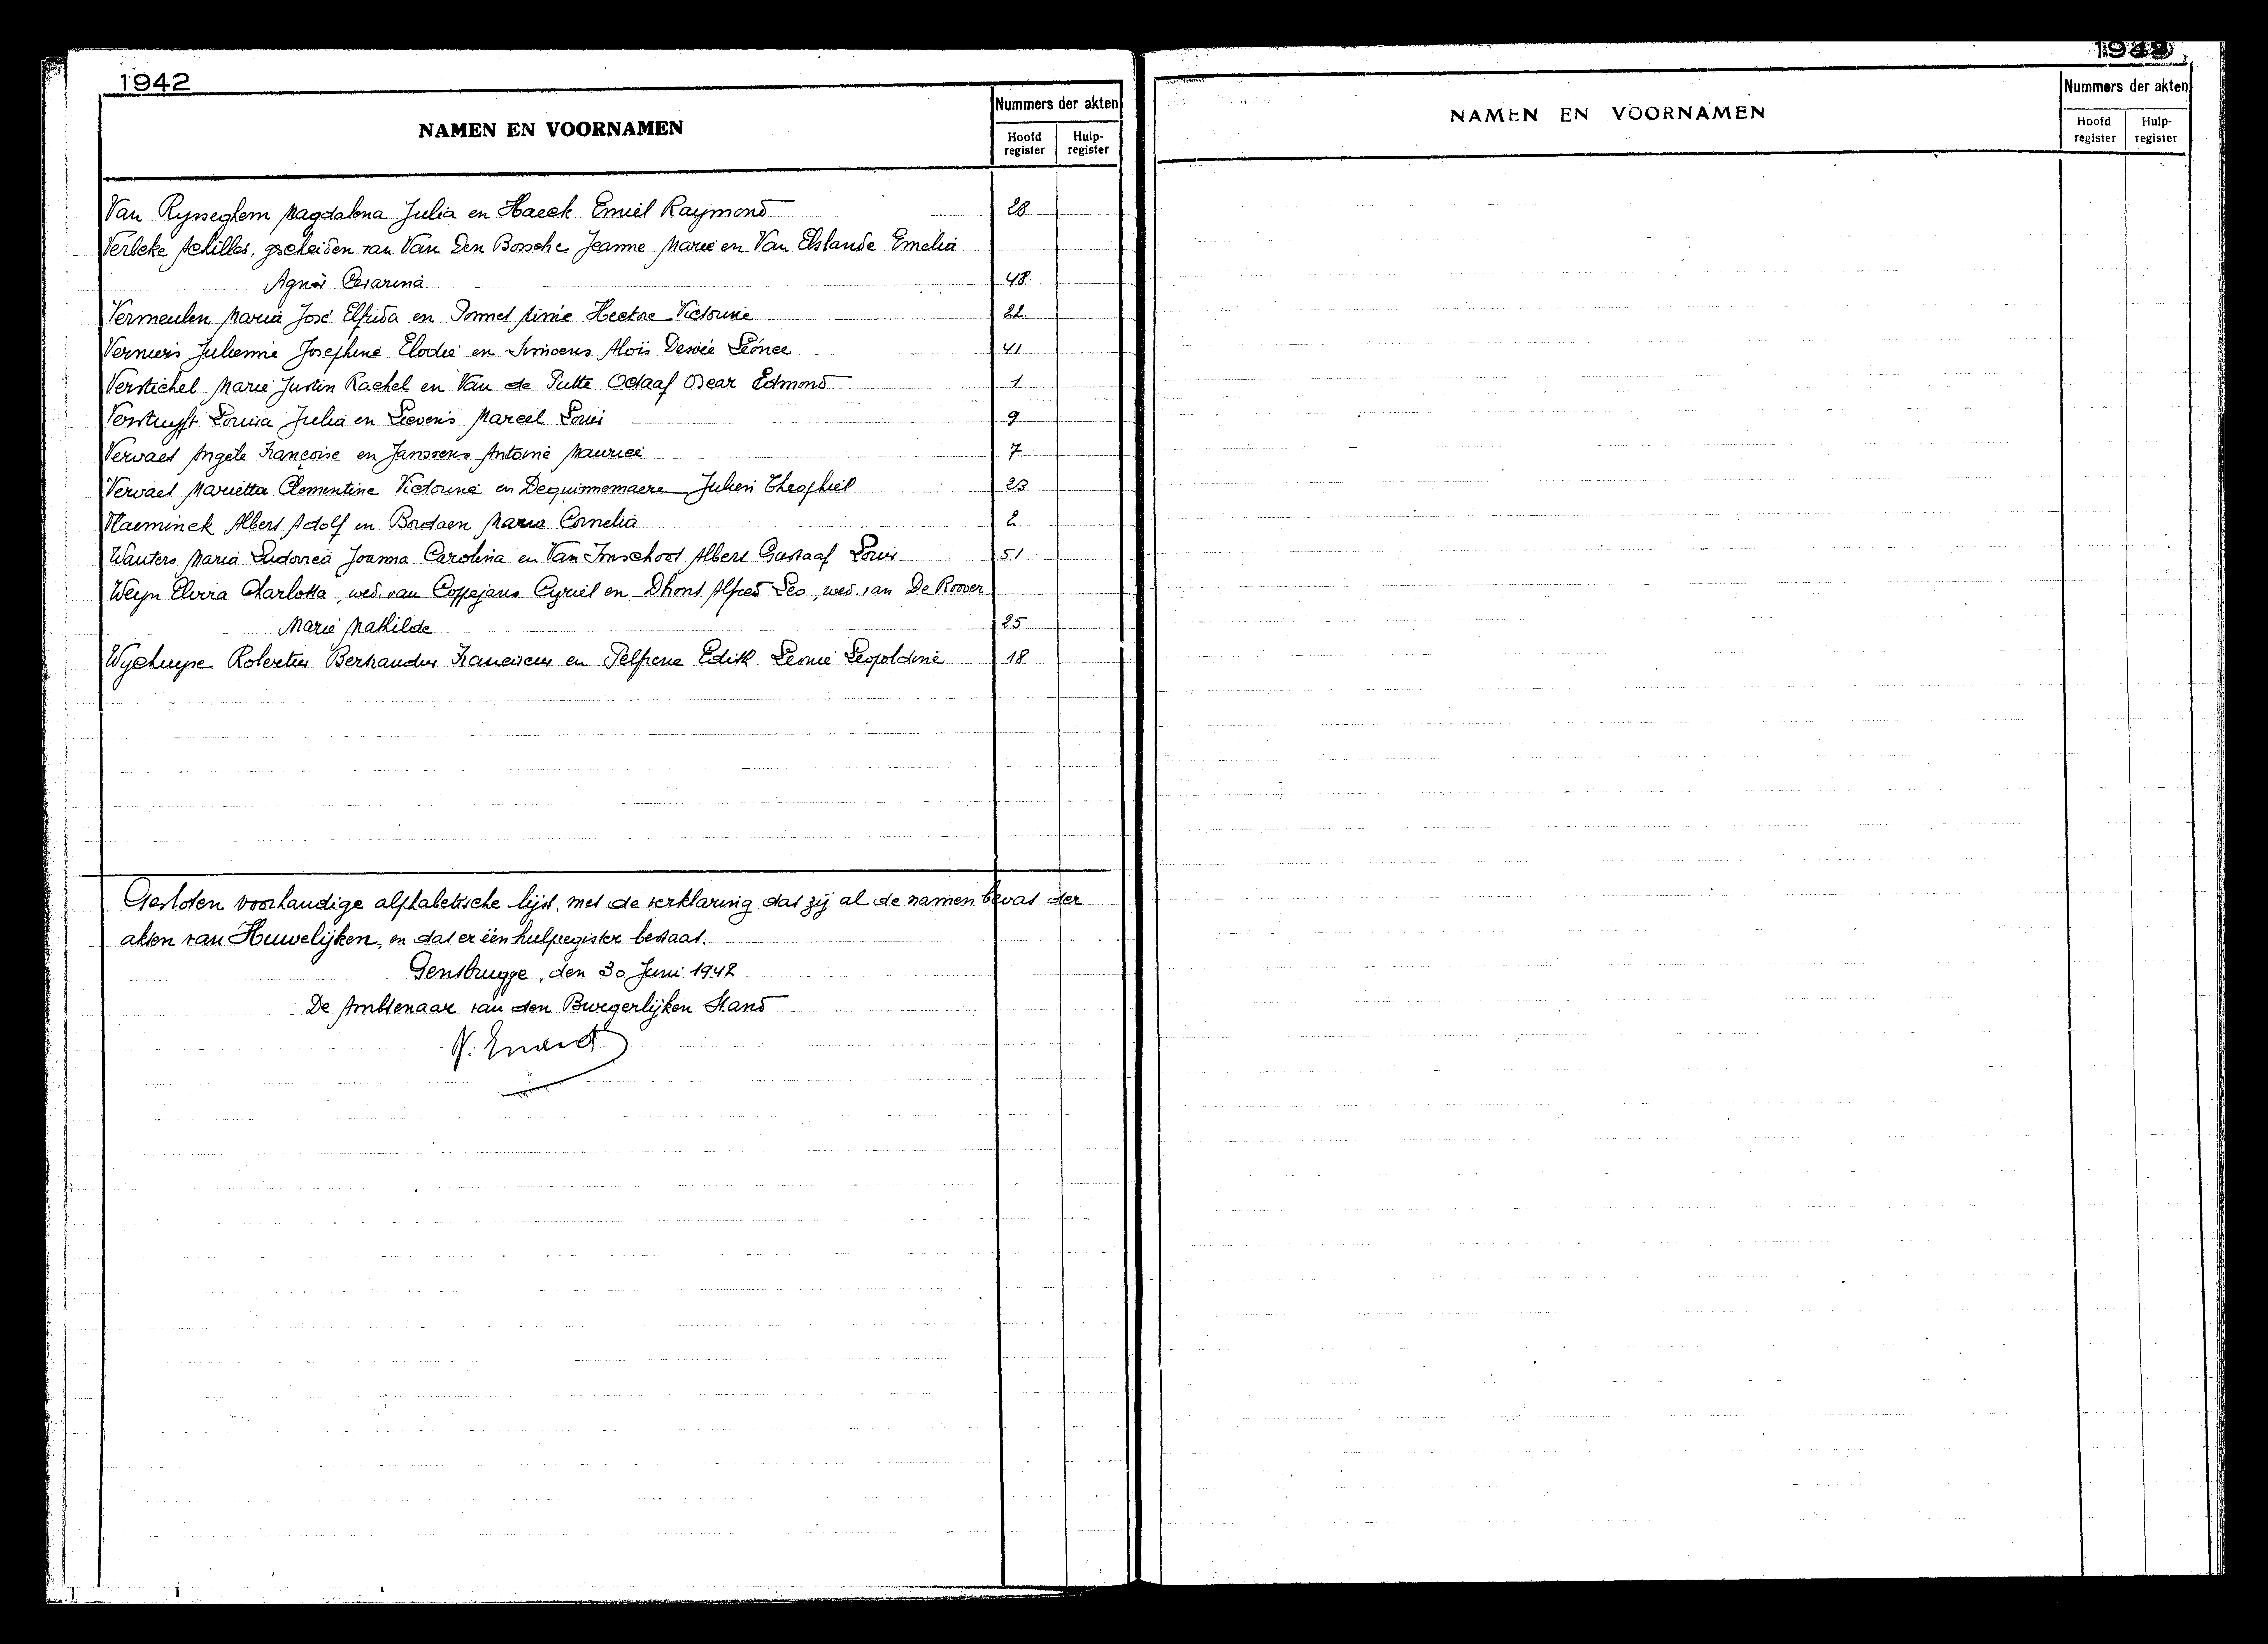 1942
NAMEN EN VOORNAMEN
Nummers der akten
Hoofd register
Hulp-register
Van Rysseghem Magdalena Julia en Haeck Emiel Raymond 28
Verleke Achilles, gescheiden van Van Den Bossche Jeanne Marie en Van Elslande Emelia
Agnès Cesarina 48
Vermeulen Maria José Elfrida en Pommet Aimé Hector Victorine 22
Verniers Julienne Josephine Elodie en Simoens Aloïs Desiré Léonce 41
Verstichel Marie Justin Rachel en Van de Putte Octaaf Oscar Edmond 1
Verstuyft Louisa Julia en Lievens Marcel Louis 9
Vervaet Angèle Françoise en Janssens Antoine Maurice 7
Vervaet Marietta Clementine Victorine en Dequinnemaere Julien Theophiel 23
Vlaeminck Albert Adolf en Bordaen Maria Cornelia 2
Wauters Maria Ludovica Joanna Carolina en Van Imschoot Albert Gustaaf Louis 51
Weyn Elvira Charlotta, wed. van Coppejans Cyriel en Dhont Alfred Leo, wed. van De Roover
Marie Mathilde 25
Wychuyse Robertus Bertrandus Franciscus en Pelfrene Edith Leonie Leopoldine 18
Gesloten voorhandige alphabetische lijst, met de verklaring dat zij al de namen bevat der
akten van Huwelijken, en dat er één hulpregister bestaat.
Gentbrugge, den 30 Juni 1942
De Ambtenaar van den Burgerlijken Stand
NAMEN EN VOORNAMEN
Nummers der akten
Hoofd register
Hulp-register